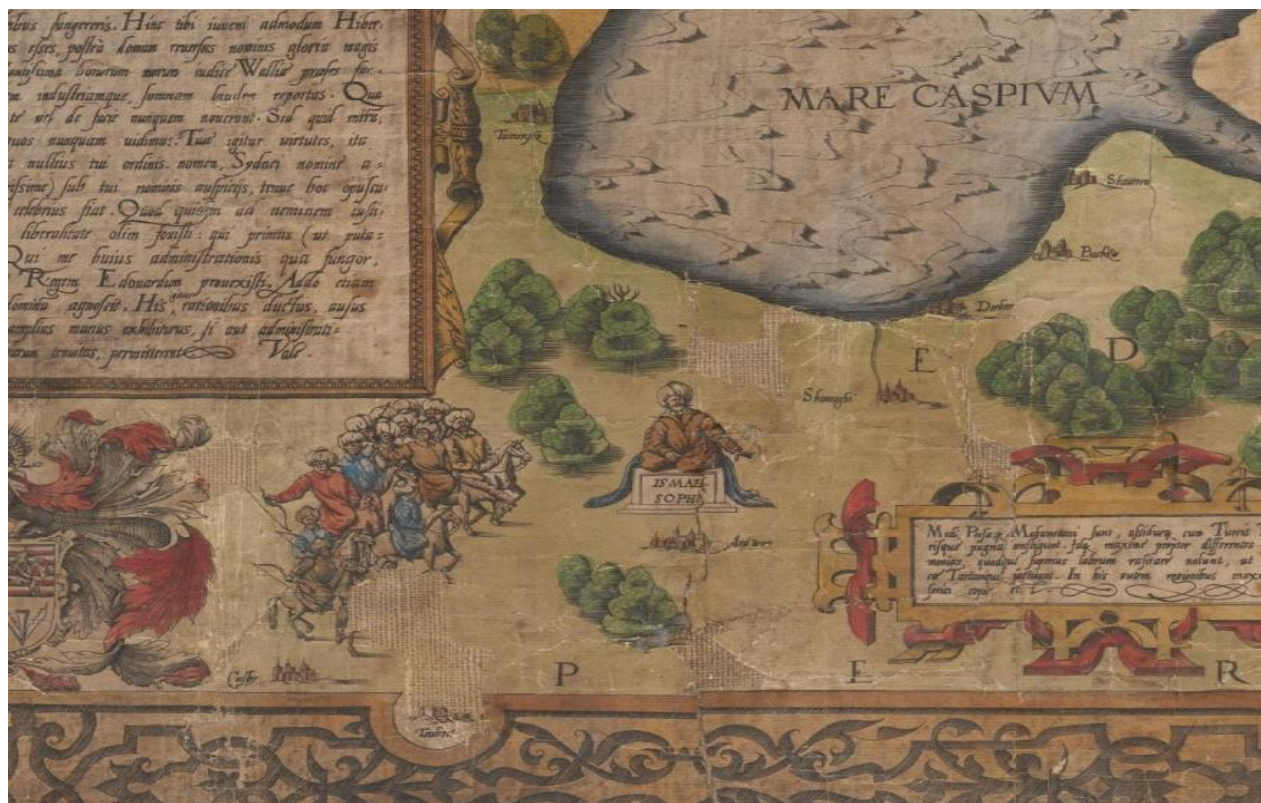 ibus fungereris. Hinc tibi iuveni admodum Hiber:
us esses, postrà domum reversus nominis gloria magis
antissima bonorum morum iudice Wallia præses fac
m industriamque summam laudem reportas. Qua
te vel de facie nunquam noverunt. Sed quid miru,
quos nunquam vidimus. Tua igitur virtutes, ita
t nullius tui ordinis nomen, Sydnei nomine a=
issime) sub tui nominis auspicijs, tenue hoc opuscu
celebrius fiat. Quod quidem ad neminem
liberalitate olim fovisti: qui primus (ut puta=
Qui me huius administrationis qua fungor,
Regem Edouardum provexisti. Addo etiam
dominu agnoscit. His rationibus ductus, ausus
amplius munus exhibiturus, si aut administrati=
arum tenuitas, permitteret Vale.
MARE CASPIVM
Tumensze
Shavren
Backow
Derbent
E D
Shamaghi
ISMAEL
SOPHI
Ardwen
Medi, Persæq3 Mahumetani sunt, assiduoq3 cum Turcis
risque pugna confligunt. Idq3 maxime propter differentes
monias, quodqui superius labrum rasitare nolunt, ut
et Tartarique In his autem regionibus max
serici copia est.
Casby
P E R
Taubris